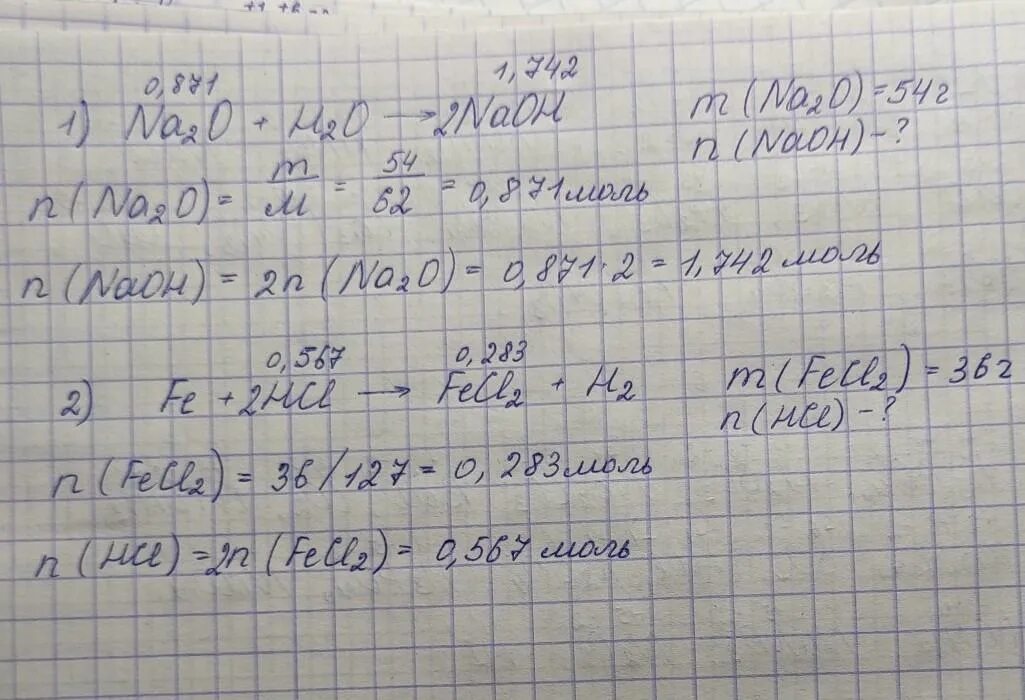 0,871 1,742
1) Na₂O + H₂O → 2NaOH
m (Na₂O) = 54 г
n (NaOH) - ?
n (Na₂O) = m/M = 54/62 = 0,871 моль
n (NaOH) = 2n (Na₂O) = 0,871 · 2 = 1,742 моль
0,567 0,283
2) Fe + 2HCl → FeCl₂ + H₂
m (FeCl₂) = 36 г
n (HCl) - ?
n (FeCl₂) = 36 / 127 = 0,283 моль
n (HCl) = 2n (FeCl₂) = 0,567 моль